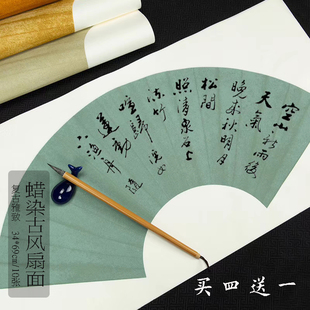 空山新雨後
天氣
晚来秋明月
松間
照清泉石上
流竹
喧歸浣女
蓮動
下漁舟
蜡染古风扇面
复古雅致 34*69cm/10张
买四送一